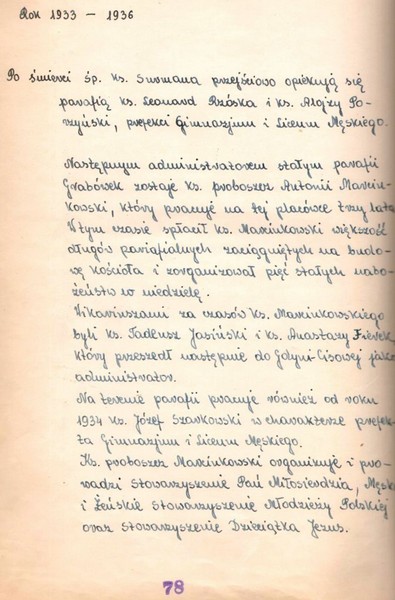 Rok 1933 – 1936
Po śmierci śp. ks. Szumana przejściowo opiekują się
parafią ks. Leonard Rzóska i ks. Alojzy Po-
rzyński, prefekci Gimnazjum i Liceum Męskiego.
Następnym administratorem stałym parafii
Grabówek zostaje ks. proboszcz Antonii Marcin-
kowski, który pracuje na tej placówce trzy lata.
W tym czasie spłacił ks. Marcinkowski większość
długów parafialnych zaciągniętych na budo-
wę kościoła i zorganizował pięć stałych nabo-
żeństw w niedzielę.
Wikariuszami za czasów ks. Marcinkowskiego
byli ks. Tadeusz Jasiński i ks. Anastazy Fierek,
który przeszedł następnie do Gdyni-Cisowej jako
administrator.
Na terenie parafii pracuje również od roku
1934 ks. Józef Szarkowski w charakterze prefek-
ta Gimnazjum i Liceum Męskiego.
Ks. proboszcz Marcinkowski organizuje i pro-
wadzi Stowarzyszenie Pań Miłosierdzia, Męsk
i Żeńskie Stowarzyszenie Młodzieży Polskiej
oraz Stowarzyszenie Dzieciątka Jezus.
78